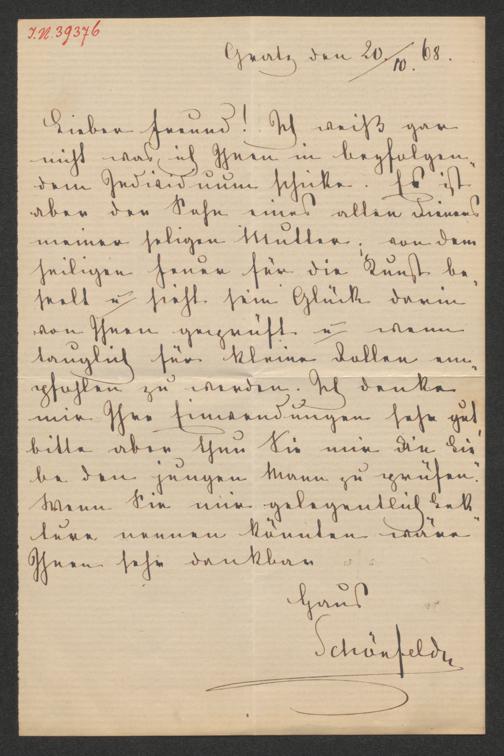 I.N. 39376
Gratz den 20/10. 68.
Lieber Freund! Ich weiß gar
nicht was ich Ihnen in beyfolgen„
dem Individuum schicke. Es ist
aber der Sohn eines alten Dieners
meiner seligen Mutter, von dem
heiligen Feuer für die Kunst be„
seelt u sieht sein Glück darin
von Ihnen geprüft u wenn
tauglich für kleine Rollen em„
pfohlen zu werden. Ich denke
mir Ihre Einwendungen sehr gut
bitte aber thun Sie mir die Lie„
be den jungen Mann zu prüfen.
Wenn Sie mir gelegentlich Lek„
ture nennen könnten wäre
Ihnen sehr dankbar
Gaus
Schönfeldn